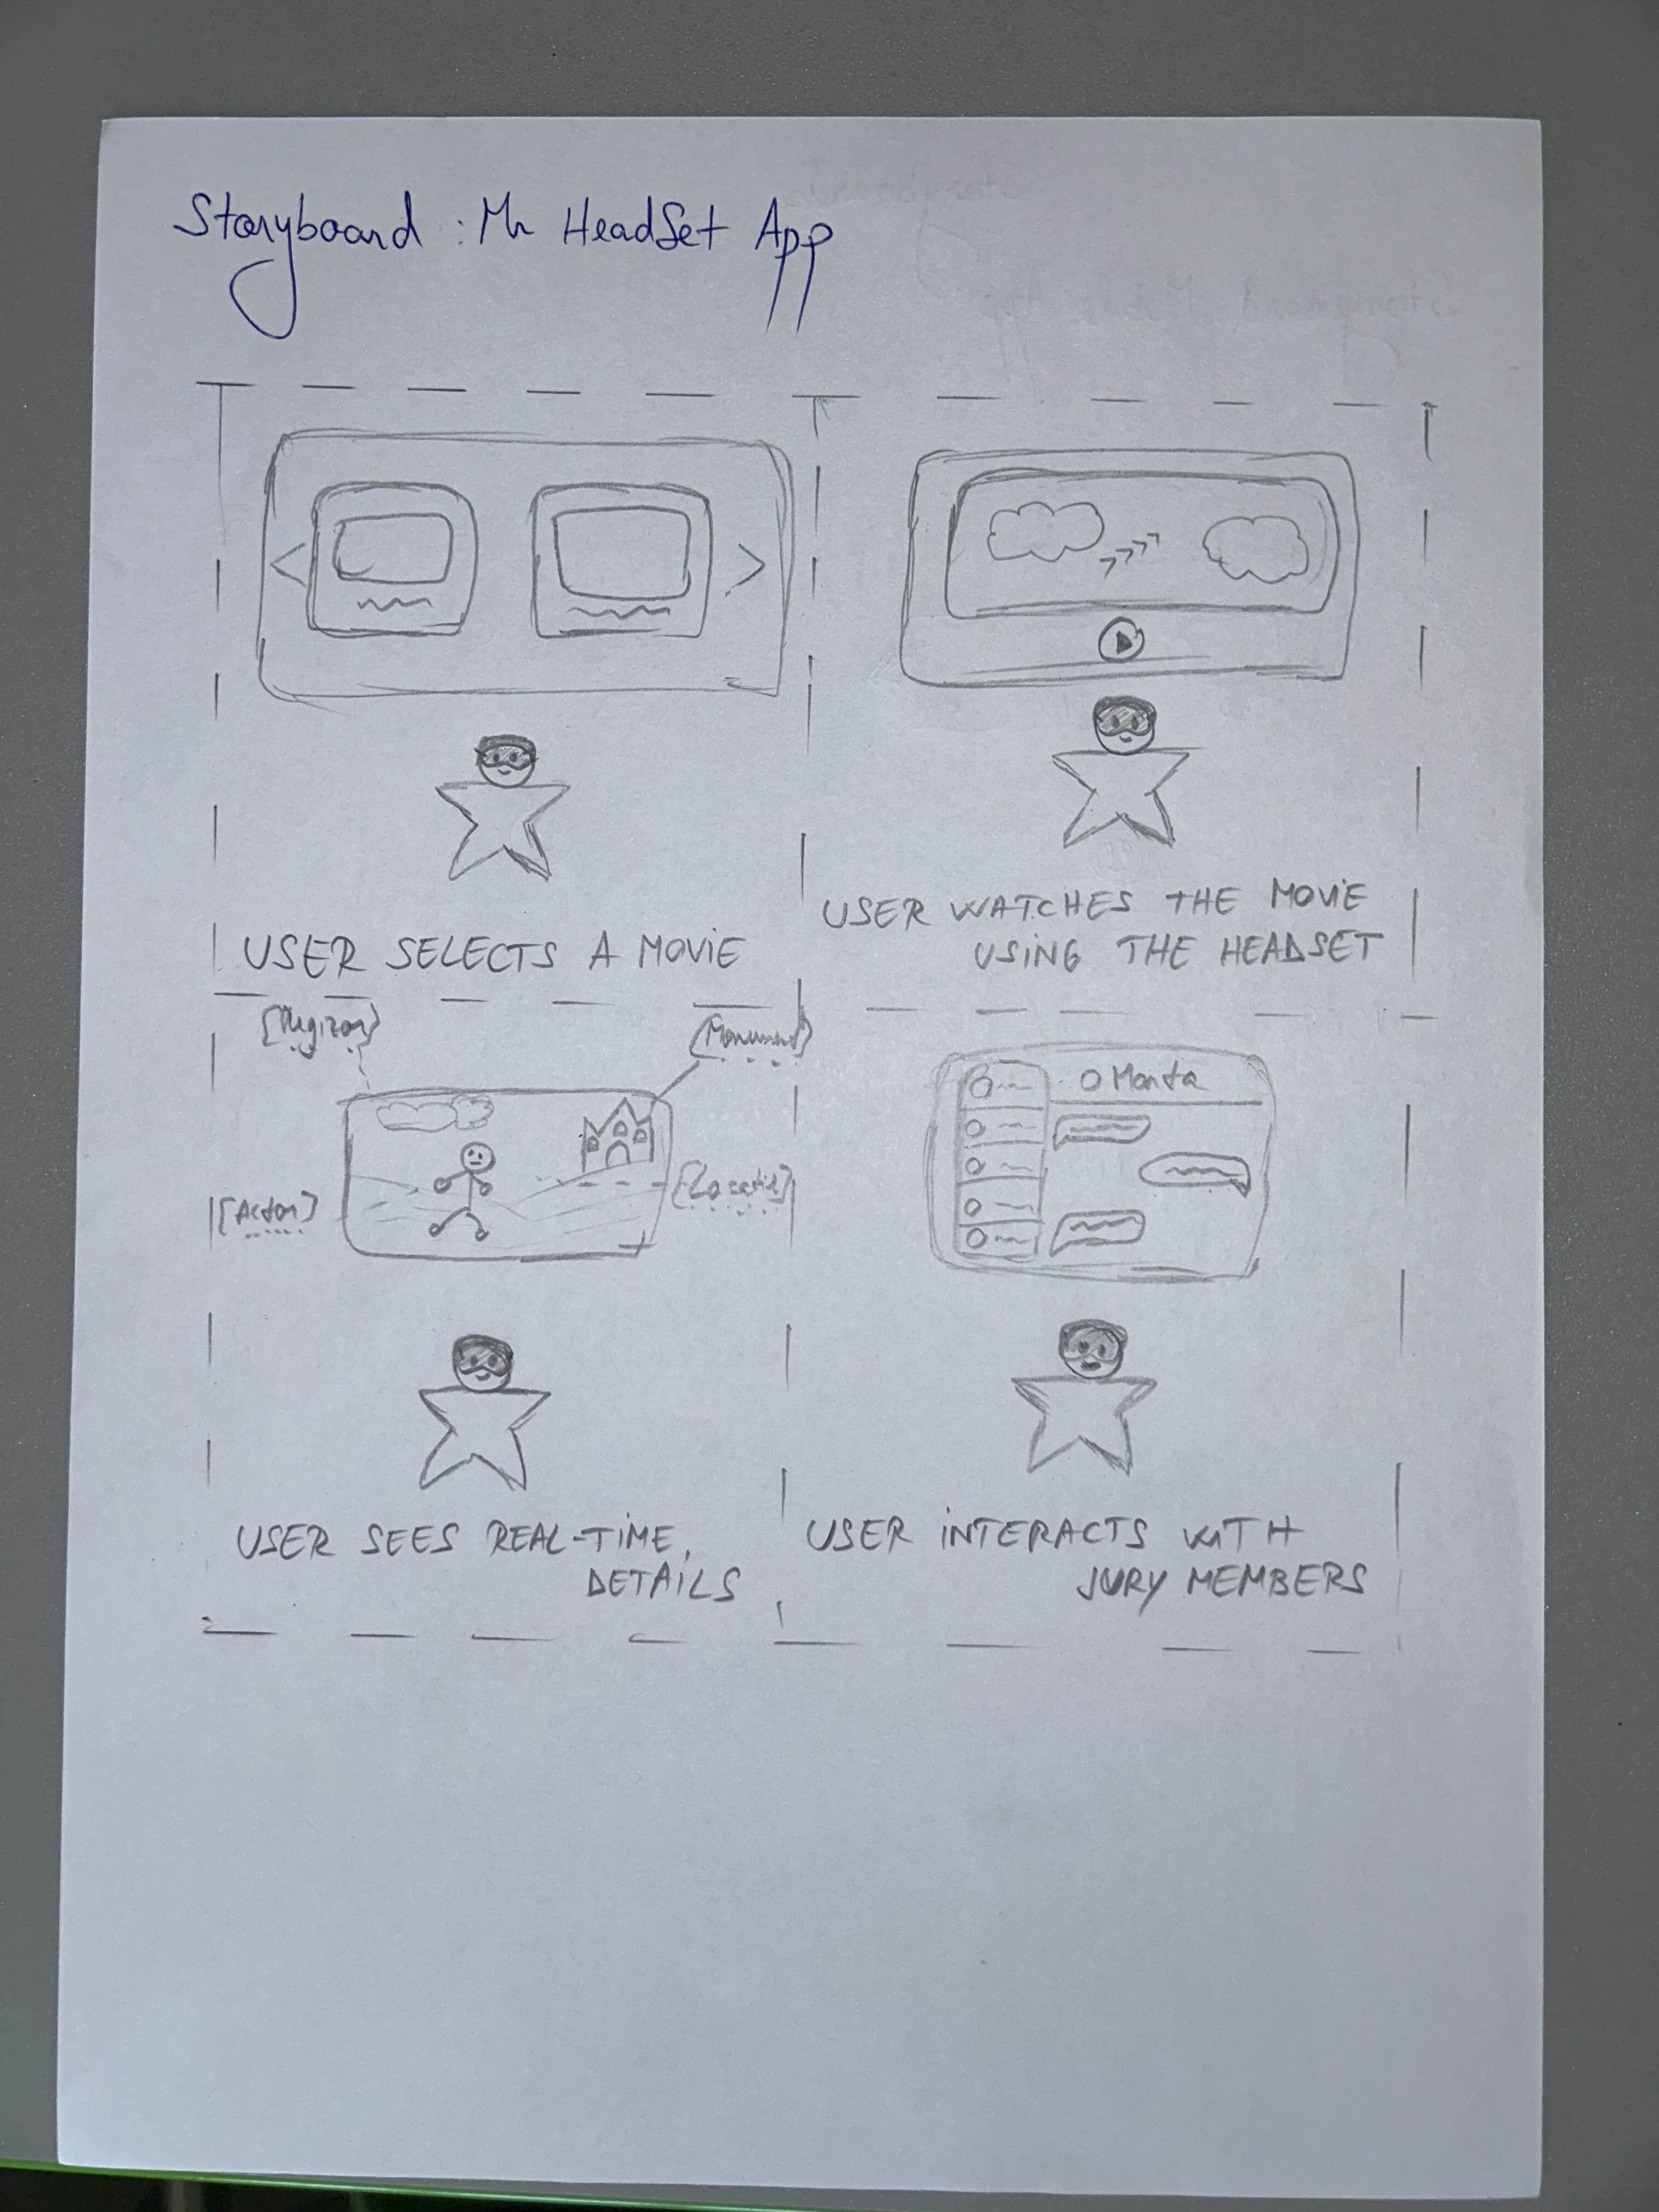 Storyboard : MR HeadSet App
USER SELECTS A MOVIE
USER WATCHES THE MOVIE
USING THE HEADSET
[Regizor]
[Monument]
[Actor]
[Locatie]
USER SEES REAL-TIME
DETAILS
Marta
USER INTERACTS WITH
JURY MEMBERS